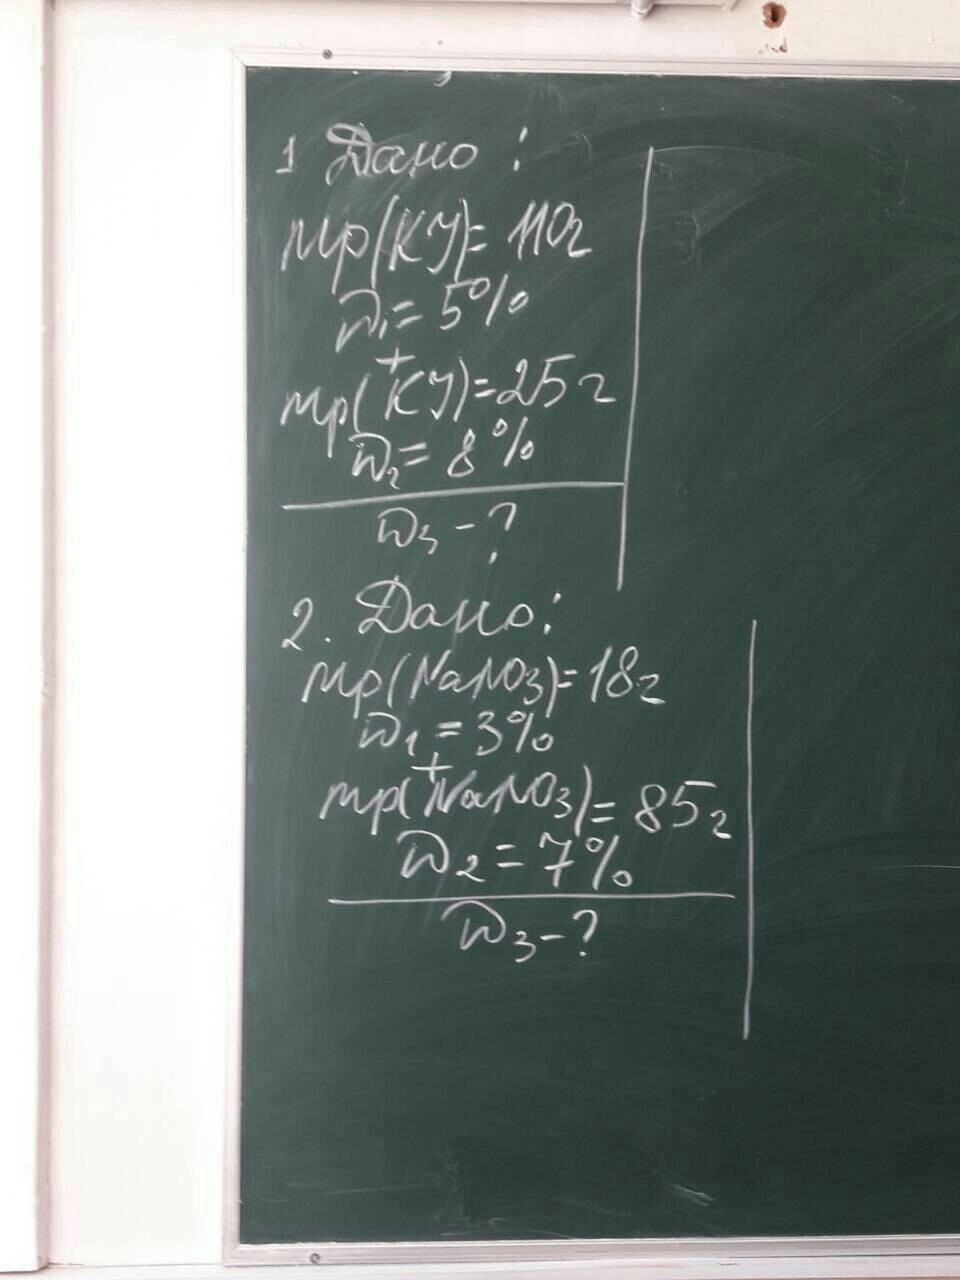 1 Дано:
mp(KJ)= 110г
W₁= 5%
+
mp(KJ)=25г
W₂= 8%
W₃ - ?
2. Дано:
mp(NaNO3)= 18г
W₁ = 3%
+
mp(NaNO3)= 85г
W₂ = 7%
W₃ - ?